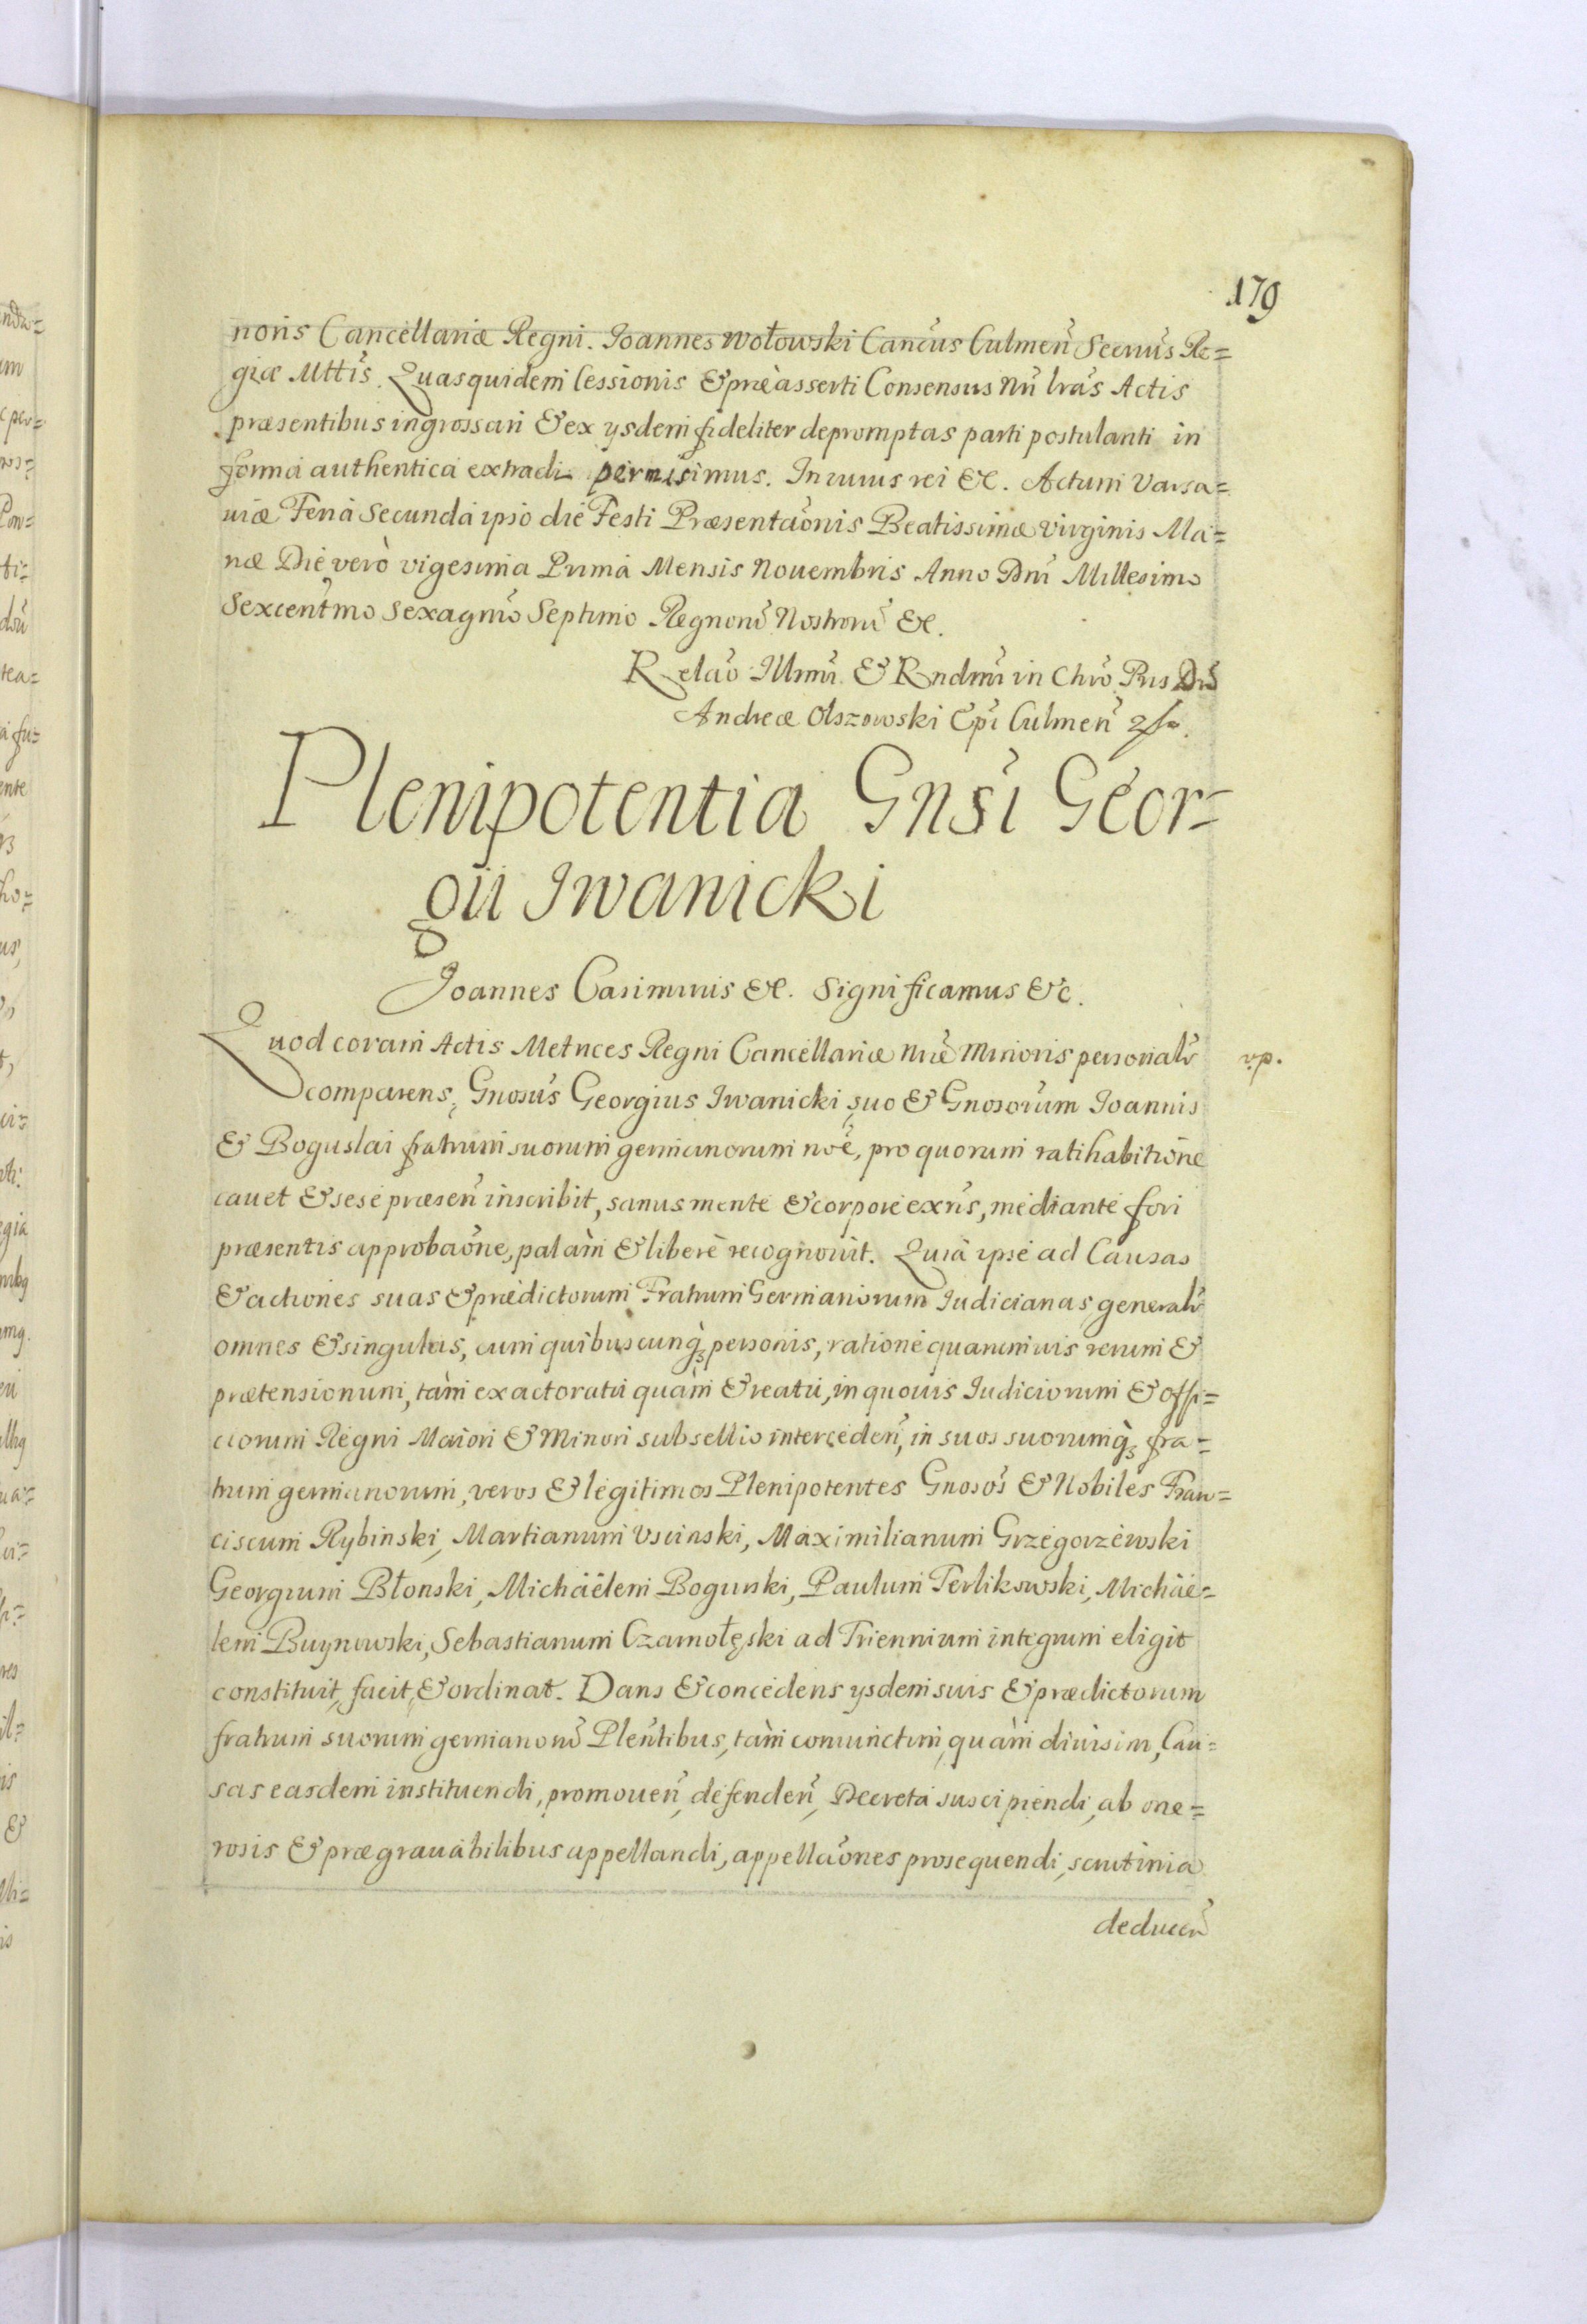 179
noris Cancellariæ Regni. Joannes Wołowski Cancus Culmen Secrius Re=
giæ Mttis. Quasquidem Cessionis & præasserti Consensus Nri lras Actis
præsentibus ingrossari & ex ysdem fideliter depromptas parti postulanti in
forma authentica extradi permisimus. In cuius rei &c. Actum Varsa=
uiæ Feria Secunda ipso die Festi Præsentaonis Beatissimæ Virginis Ma=
riæ Die verò vigesima Prima Mensis Nouembris Anno Dni Millesimo
Sexcentmo Sexagmo Septimo Regnorũ Nostrorũ &c.
Relao Illmi & Rndmi in Chro Pris Dni
Andreæ Olszowski Epi Culmen
Plenipotentia Gnsi Geor=
gii Iwanicki
Joannes Casimirus &c. Significamus &c.
Quod coram Actis Metrices Regni Cancellariæ Nræ Minoris personalr
v.p.
comparens, Gnosus Georgius Iwanicki suo & Gnosorum Joannis
& Boguslai fratrum suorum germanorum noe, pro quorum ratihabitione
cauet & sese præsen inscribit, sanus mente & corpore exns, mediante fori
præsentis approbaone, palàm & liberè recognouit. Quia ipse ad Causas
& actiones suas & prædictorum Fratrum Germanorum Iudiciarias generalr
omnes & singulas, cum quibuscunq; personis, ratione quarumuis rerum &
prætensionum, tàm ex actoratu quàm & reatu, in quouis Iudiciorum & offi=
ciorum Regni Maiori & Minori subsellio interceden, in suos suorumq; fra=
trum germanorum, veros & legitimos Plenipotentes Gnosos & Nobiles Fran=
ciscum Rybinski, Martianum Uscinski, Maximilianum Grzegorzewski
Georgium Błonski, Michäëlem Bogurski, Paulum Terlikowski, Michäe=
lem Buynowski, Sebastianum Czarnołęski ad Triennium integrum eligit
constituit, facit, & ordinat. Dans & concedens ysdem suis & prædictorum
fratrum suorum germanorũ Plentibus, tàm coniunctim, quàm diuisim, Cau=
sas easdem instituendi, promouen, defenden, Decreta suscipiendi, ab one=
rosis & prægrauabilibus appellandi, appellaones prosequendi, scrutinia
deducen